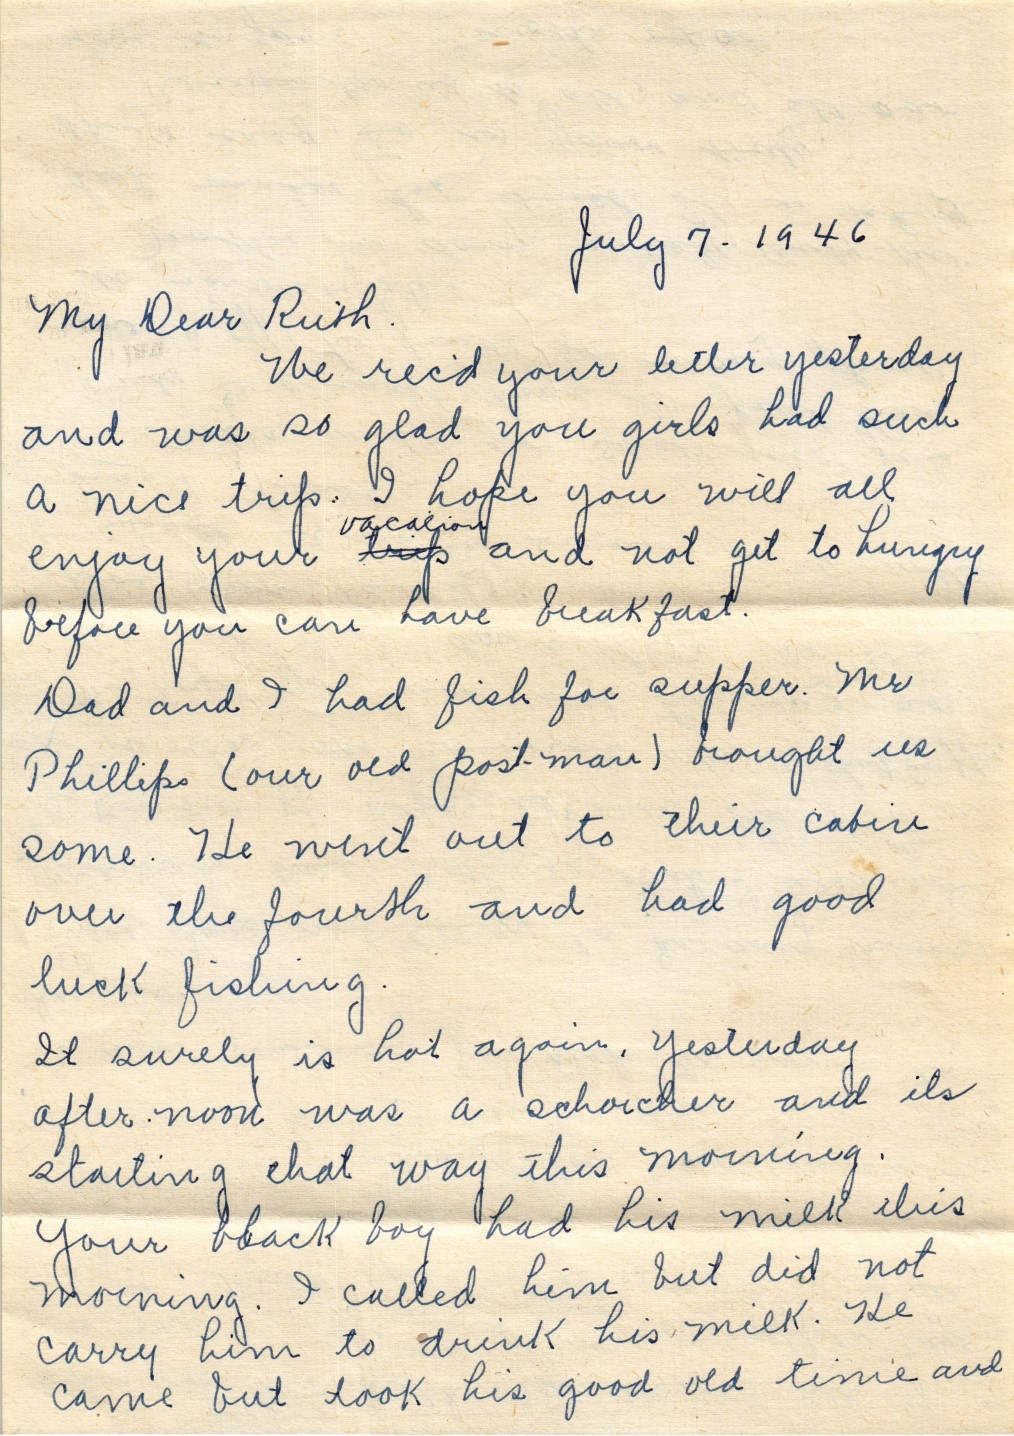 July 7. 1946
My Dear Ruth.
We rec'd your letter yesterday
and was so glad you girls had such
a nice trip. I hope you will all
vacation
enjoy your trip and not get to hungry
before you can have breakfast.
Dad and I had fish for supper. Mr
Phillips (our old post-man) brought us
some. He went out to their cabin
over the fourth and had good
luck fishing.
It surely is hot again. Yesterday
after-noon was a schorcher and its
starting that way this morning.
Your black boy had his milk this
morning. I called him but did not
carry him to drink his milk. He
came but took his good old time and